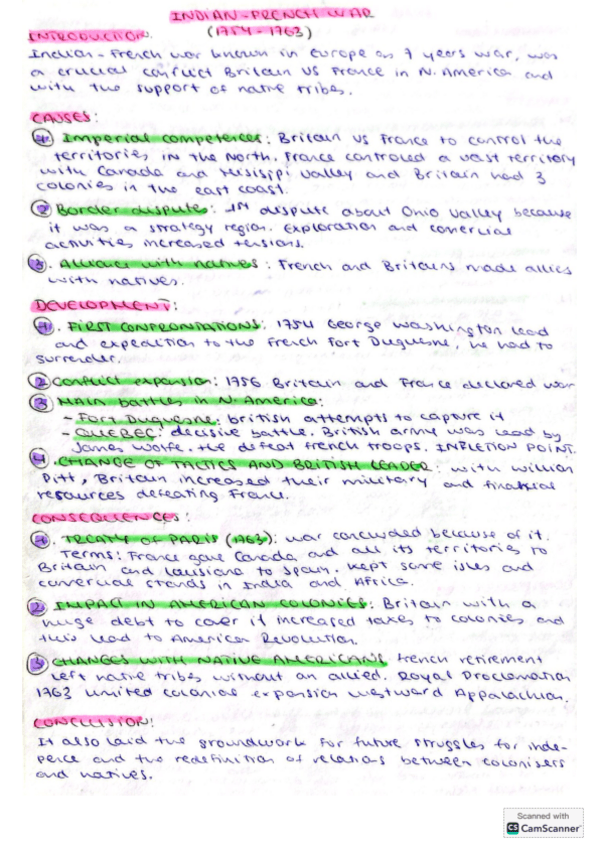 INDIAN-FRENCH WAR
(1754-1763)
INTRODUCTION.
Indian-French war known in Europe as 7 years war, was
a crucial conflict Britain VS France in N. America and
with the support of native tribes.
CAUSES:
1. Imperial competences: Britain vs France to control the
territories in the North. France controled a vast territory
with Canada and Misisipi Valley and Britain had 3
colonies in the east coast.
2 Border disputes: 1st dispute about Ohio Valley because
it was a strategy region. Exploration and comercial
activities increased tensions.
3. Alliances with natives: French and Britains made allies
with natives.
DEVELOPMENT:
1. FIRST CONFRONTATIONS: 1754 George Washington lead
and expedition to the French Fort Duquesne, he had to
surrender.
2 Conflict expansion: 1756 Britain and France declared war
3 Main battles in N. America:
- Fort Duquesne: british attempts to capture it
- QUEBEC: decisive battle. British army was lead by
James Wolfe. the defeat french troops. INFLETION POINT.
4. CHANGE OF TACTICS AND BRITISH LEADER: with William
Pitt, Britain increased their military and finantial
resources defeating France.
CONSEQUENCES:
1. TREATY OF PARIS (1763): war concluded because of it.
Terms: France gave Canada and all its territories to
Britain and Lousiana to Spain. Kept some isles and
comercial stands in India and Africa.
2. IMPACT IN AMERICAN COLONIES: Britain with a
huge debt to cover it increased taxes to colonies and
this lead to America Revolution.
3 CHANGES WITH NATIVE AMERICANS french retirement
left native tribes without an allied. Royal Proclamation
1763 limited colonial expansion westward Appalachian.
CONCLUSION:
It also laid the groundwork for future struggles for inde-
pence and the redefinition of relations between colonisers
and natives.
Scanned with
CS CamScanner